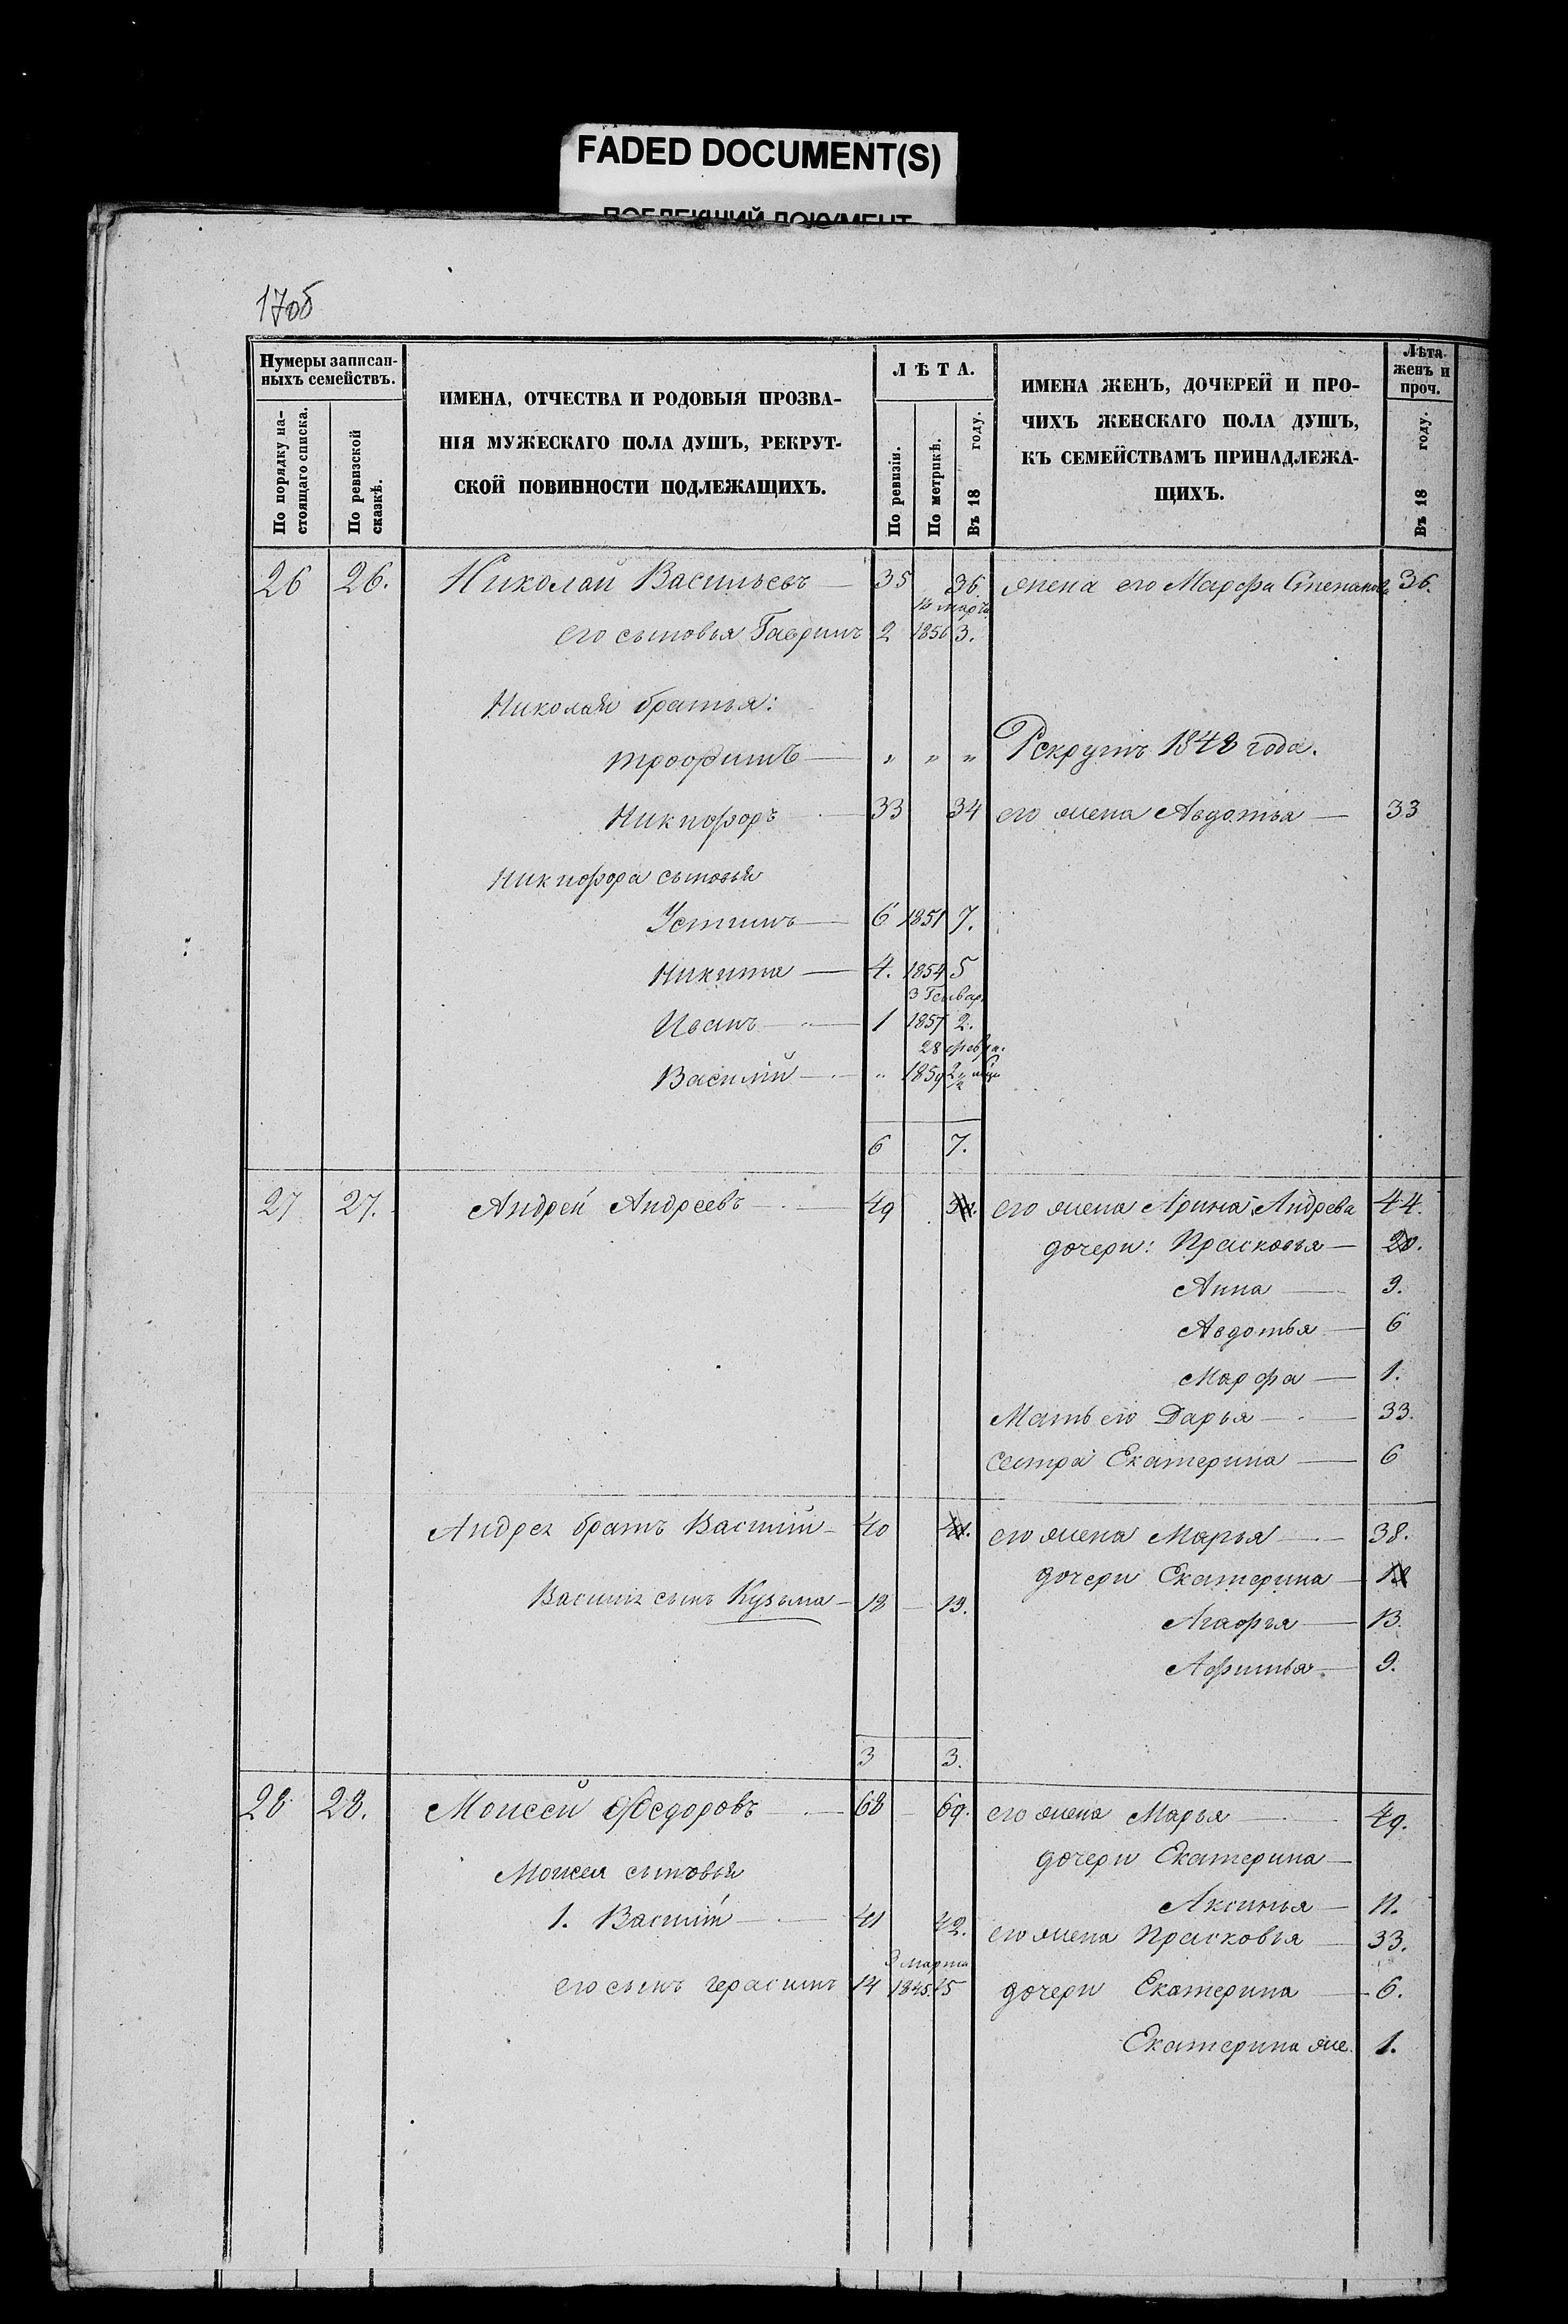 FADED DOCUMENT(S)
ПОБЛЕКШИЙ ДОКУМЕНТ
17об
Нумеры записан-
ныхъ семействъ.
По порядку на-
стоящаго списка.
По ревизской
сказкѣ.
ИМЕНА, ОТЧЕСТВА И РОДОВЫЯ ПРОЗВА-
НІЯ МУЖЕСКАГО ПОЛА ДУШЪ, РЕКРУТ-
СКОЙ ПОВИННОСТИ ПОДЛЕЖАЩИХЪ.
ЛѢТА.
По ревизіи.
По метрикѣ.
Въ 18 году.
ИМЕНА ЖЕНЪ, ДОЧЕРЕЙ И ПРО-
ЧИХЪ ЖЕНСКАГО ПОЛА ДУШЪ,
КЪ СЕМЕЙСТВАМЪ ПРИНАДЛЕЖА-
ЩИХЪ.
Лѣта
женъ и
проч.
Въ 18 году.
26 26. Николай Васильевъ — 35 36. жена его Марфа Степанова 36.
марта
его сыновья Гаврилъ 2 1856 3.
Николая братья:
Трофимъ — " " " Рекрутъ 1848 года.
Никифоръ — 33 34 его жена Авдотья — 33
Никифора сыновья
Устинъ — 6 1851 7.
Никита — 4. 1854 5
3 Генвар.
Иванъ — 1 1857 2.
28 февра.
Василій — " 1859
6 7.
27 27. Андрей Андреевъ — 49 его жена Арина Андрева 44.
дочери: Прасковья — 20.
Анна — 9.
Авдотья — 6
Марфа — 1.
Мать его Дарья — 33.
сестра Екатерина — 6
Андрея братъ Василій — 40 41. его жена Марья — 38.
дочери Екатерина — 18
Василія сынъ Кузьма — 18 — 19.
Агафья — 13.
Афимья — 9.
3 3.
28 28. Моисей Федоровъ — 68 — 69. его жена Марья — 49.
дочери Екатерина —
Моисея сыновья
Аксинья — 11.
1. Василій — 41 42. его жена Прасковья — 33.
марта
его сынъ Герасимъ 14 1845. 15 дочери Екатерина — 6.
Екатерина же. 1.